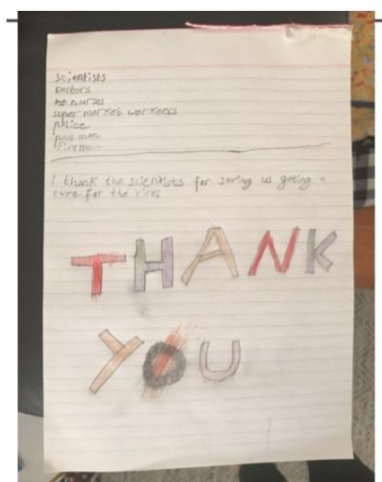 scientists
Doctors
nurses
super market workers
police
Firemen
I thank the scientists for saving us geting a
cure for the vires
THANK
YOU